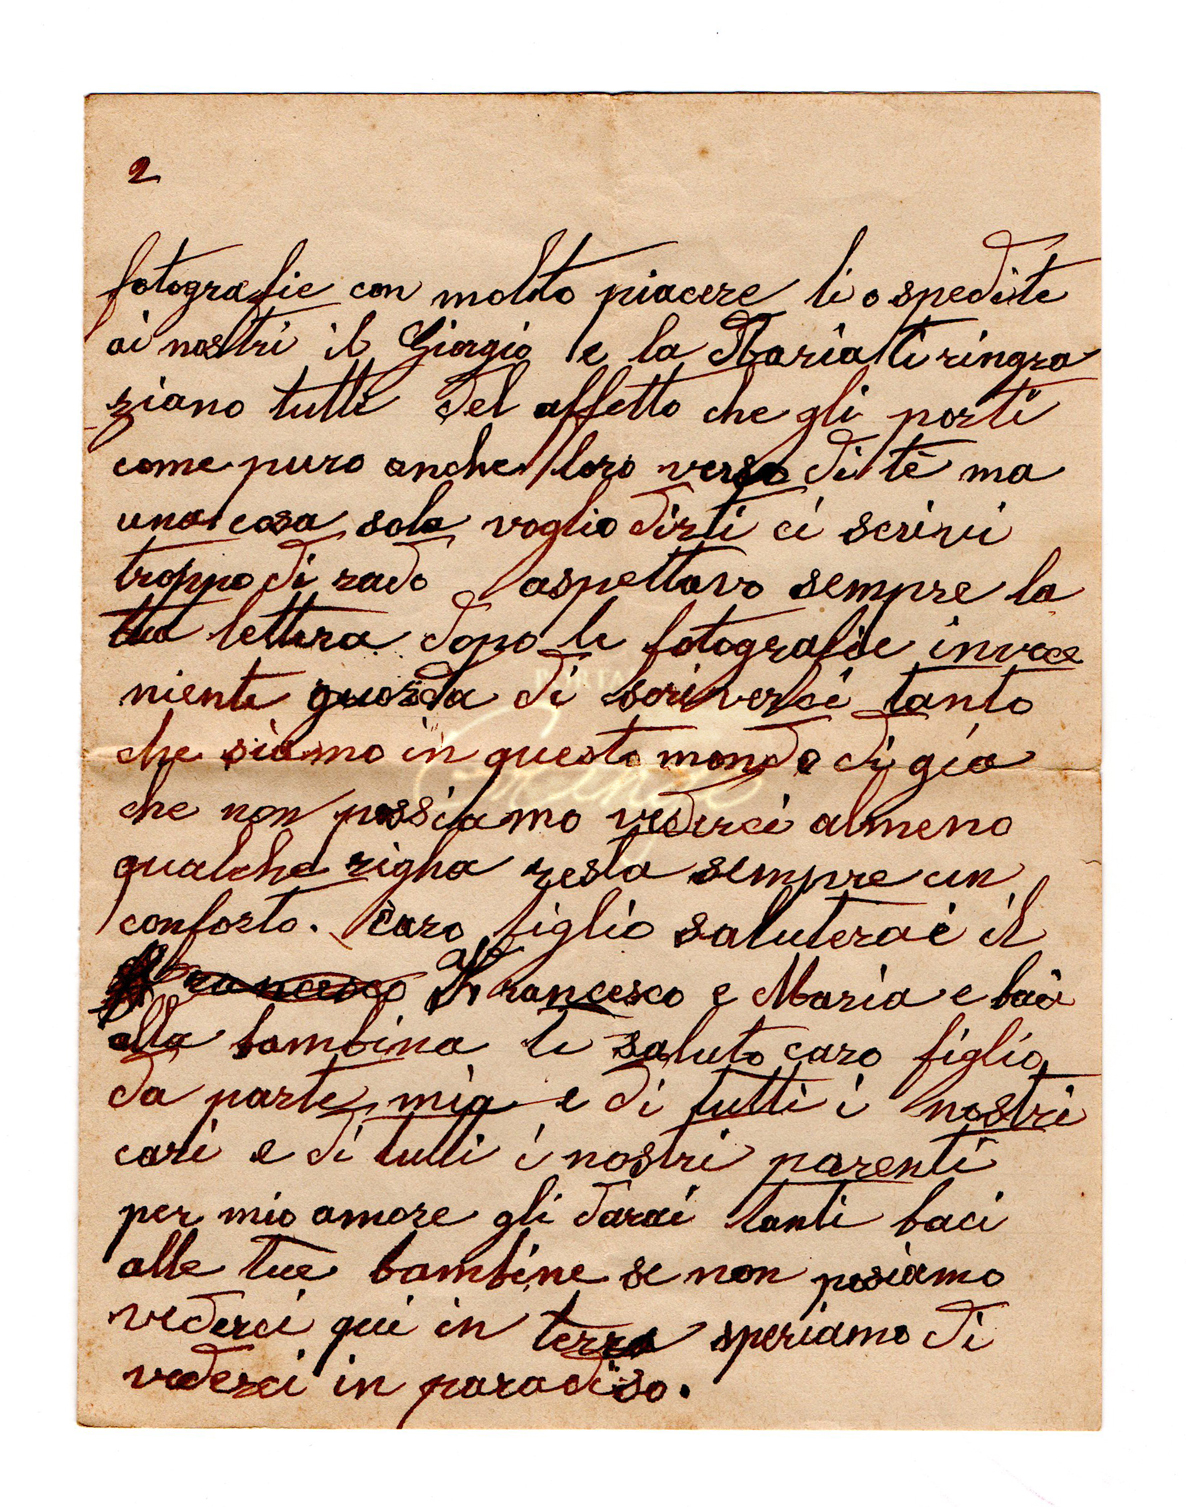 2
fotografie con molto piacere li o spedite
ai nostri il Giorgio e la Maria ti ringra
ziano tutti del affetto che gli porti
come puro anche loro verso di te ma
una cosa sola voglio dirti ci scrivi
troppo di rado aspettavo sempre la
tua lettera dopo le fotografie invece
niente guarda di scriverci tanto
che siamo in questo mondo di gia
che non possiamo vederci almeno
qualche righa resta sempre un
conforto. Caro figlio saluterai il
Francesco Francesco e Maria e baci
alla bambina ti saluto caro figlio
da parte mia e di tutti i nostri
cari e di tutti i nostri parenti
per mio amore gli darai tanti baci
alle tue bambine se non posiamo
vederci qui in terra speriamo di
vederci in paradiso.